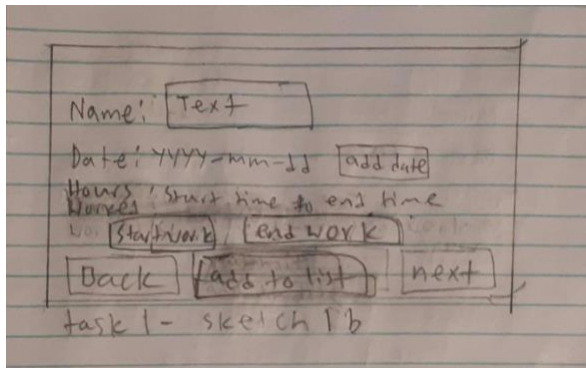 Name: Text
Date: YYYY-mm-dd add date
Hours
Worked : Start time to end time
Start work end work
Back add to list next
task 1 - sketch 1b